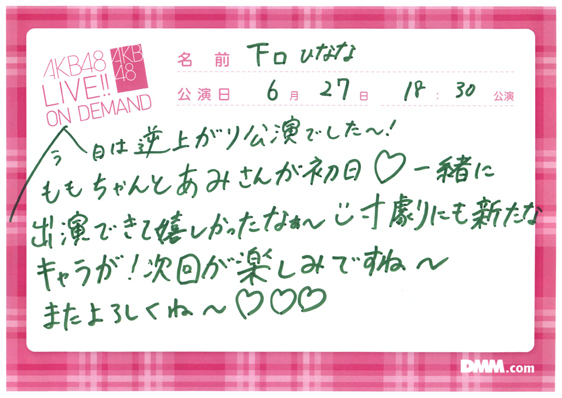 AKB48
LIVE!!
ON DEMAND
AKB
48
名前 下口ひなな
公演日 6月27日 18:30 公演
今日は逆上がり公演でした〜!
ももちゃんとあみさんが初日♡一緒に
出演できて嬉しかったなぁ〜 寸劇にも新たな
キャラが!次回が楽しみですね〜
またよろしくね〜♡♡♡
DMM.com